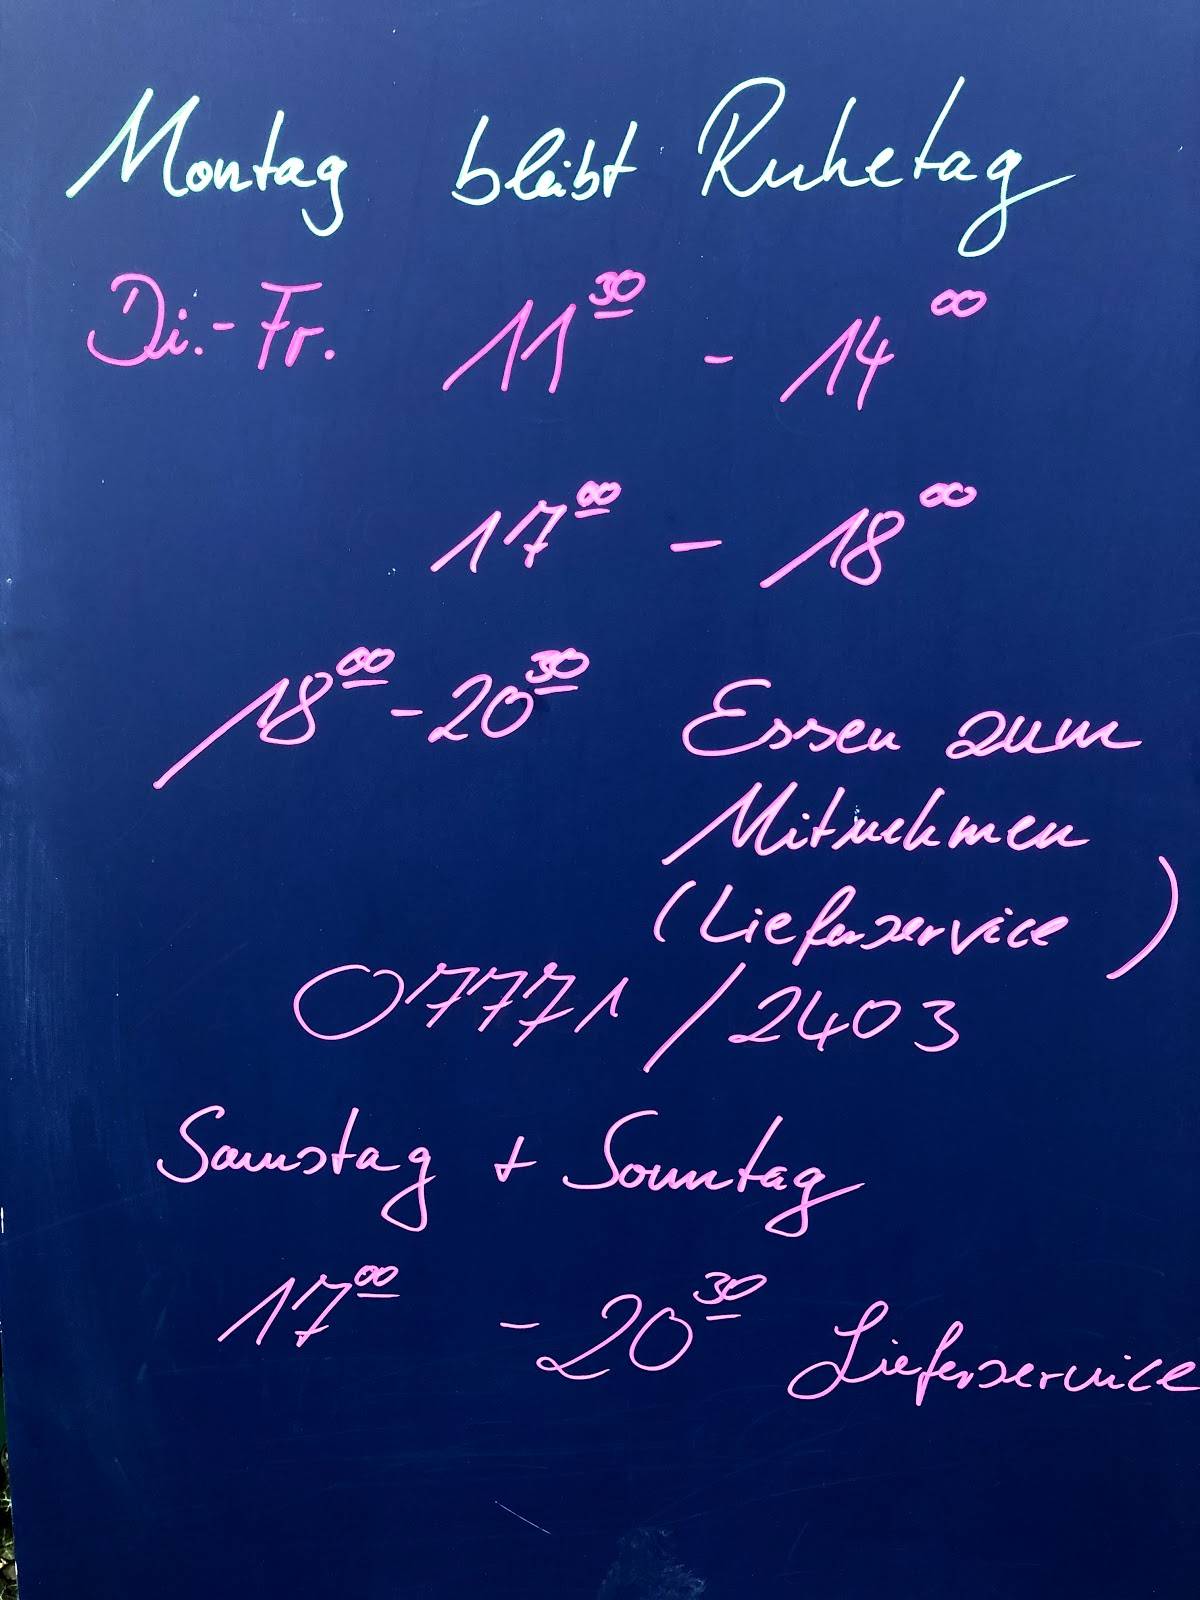 Montag bleibt Ruhetag
Di.-Fr. 11 30 - 14 00
17 00 - 18 00
18 00 - 20 30 Essen zum
Mitnehmen
(Lieferservice )
07771 / 2403
Samstag + Sonntag
17 00 - 20 30 Lieferservice